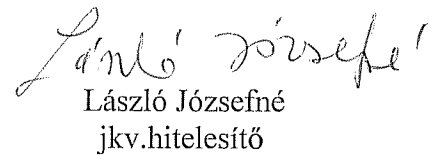 László Józsefné
László Józsefné
jkv.hitelesítő